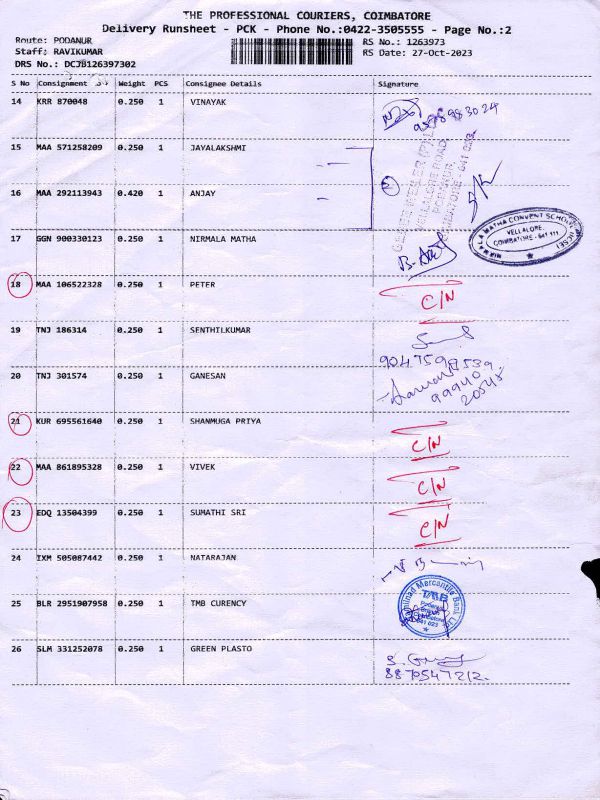 THE PROFESSIONAL COURIERS, COIMBATORE
Delivery Runsheet - PCK - Phone No.:0422-3505555 - Page No.:2
Route: PODANUR
Staff: RAVIKUMAR
DRS No.: DCJB126397302
RS No.: 1263973
RS Date: 27-Oct-2023
S No Consignment Weight PCS Consignee Details Signature
14 KRR 870048 0.250 1 VINAYAK
15 MAA 571258209 0.250 1 JAYALAKSHMI
16 MAA 292113943 0.420 1 ANJAY
17 GGN 900330123 0.250 1 NIRMALA MATHA
NIRMALA MATHA CONVENT SCHOOL (ICSE)
VELLALORE,
COIMBATORE - 641 111
VELLALORE ROAD
PODANUR,
COIMBATORE - 641 023
18 MAA 106522328 0.250 1 PETER C/N
19 TNJ 186314 0.250 1 SENTHILKUMAR
9047598539
20 TNJ 301574 0.250 1 GANESAN
99940
20548
21 KUR 695561640 0.250 1 SHANMUGA PRIYA C/N
22 MAA 861895328 0.250 1 VIVEK C/N
23 EDQ 13504399 0.250 1 SUMATHI SRI C/N
24 IXM 505087442 0.250 1 NATARAJAN
25 BLR 2951907958 0.250 1 TMB CURENCY
Tamilnad Mercantile Bank Ltd
TMB
Podanur
Branch
Coimbatore
641 023
26 SLM 331252078 0.250 1 GREEN PLASTO
8870547212